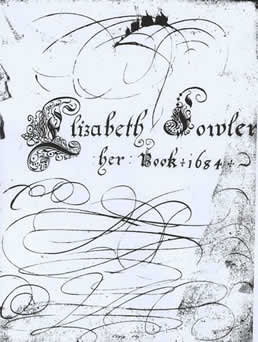 Elizabeth Fowler
her : Book ÷ 1684 ÷